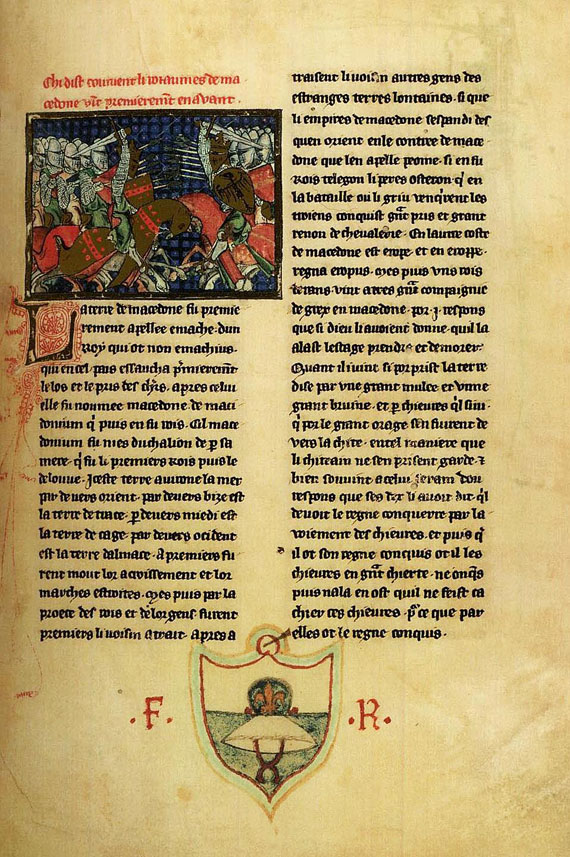 Chi dist coument li roiaumes de ma
cedone vīt premieremt̄ en avant .
La terre de macedone fu premie
rement apellee emache . dun
Roy qui ot non emachius .
qui en cel pais essaucha p̄mieremt̄
le los et le pris des chrs̄ . apres celui
elle fu noumee macedone . de maci
donium q̄ puis en fu rois . Cil mace
donium fu nies duchalion de p̄ sa
mere . q̄ fu li premiers rois puis le
delouue . Iceste terre auirone la mer
par devers orient . par devers bize est
la terre de trace . p̄ devers miedi est
la terre de cage . par devers ocident
est la terre dalmace . A premiers fu
rent mout lor acroissement et lor
marches estroites . Mes puis par la
proece des rois et de lor gens furent
premiers li voisin atrait . Apres a
traisent li voisin autres gens des
estranges terres lontaines . si que
li empires de macedone sespandi des
quen orient . en le contree de mace
done que len apelle peonie . si en fu
Rois telegon li peres osteron q̄ en
la bataille ou li griu venq̄rent les
troiens conquist gn̄t pris et grant
renon de chevalerie . En lautre coste
de macedone est erope . et en eroppe .
regna eropus . Mes puis vns rois
vint a tres gn̄t compaignie
de grex en macedone . por . j . respons
que si dieu li avoient donne . quil la
alast lestage prendre et demorer .
Quant il vint si porprist la terre
dise par vne grant mulee et vnne
grant bruine . et p̄ chieures q̄l siui .
q̄ por le grant orage sen fuirent de
vers la chite . en tel maniere que
li chiteain ne sen prisent garde . ⁊
bien souuint a celui
respons que ses dex li avoit dit q̄l
devoit le regne conquerre par la
voiement des chieures . et puis q̄
il ot son regne conquis ot il les
chieures en gn̄t chierte . ne onq̄s
puis nala en ost quil ne feist ca
chier ces chieures . p̄ce que par
elles ot le regne conquis .
. F .
. R .